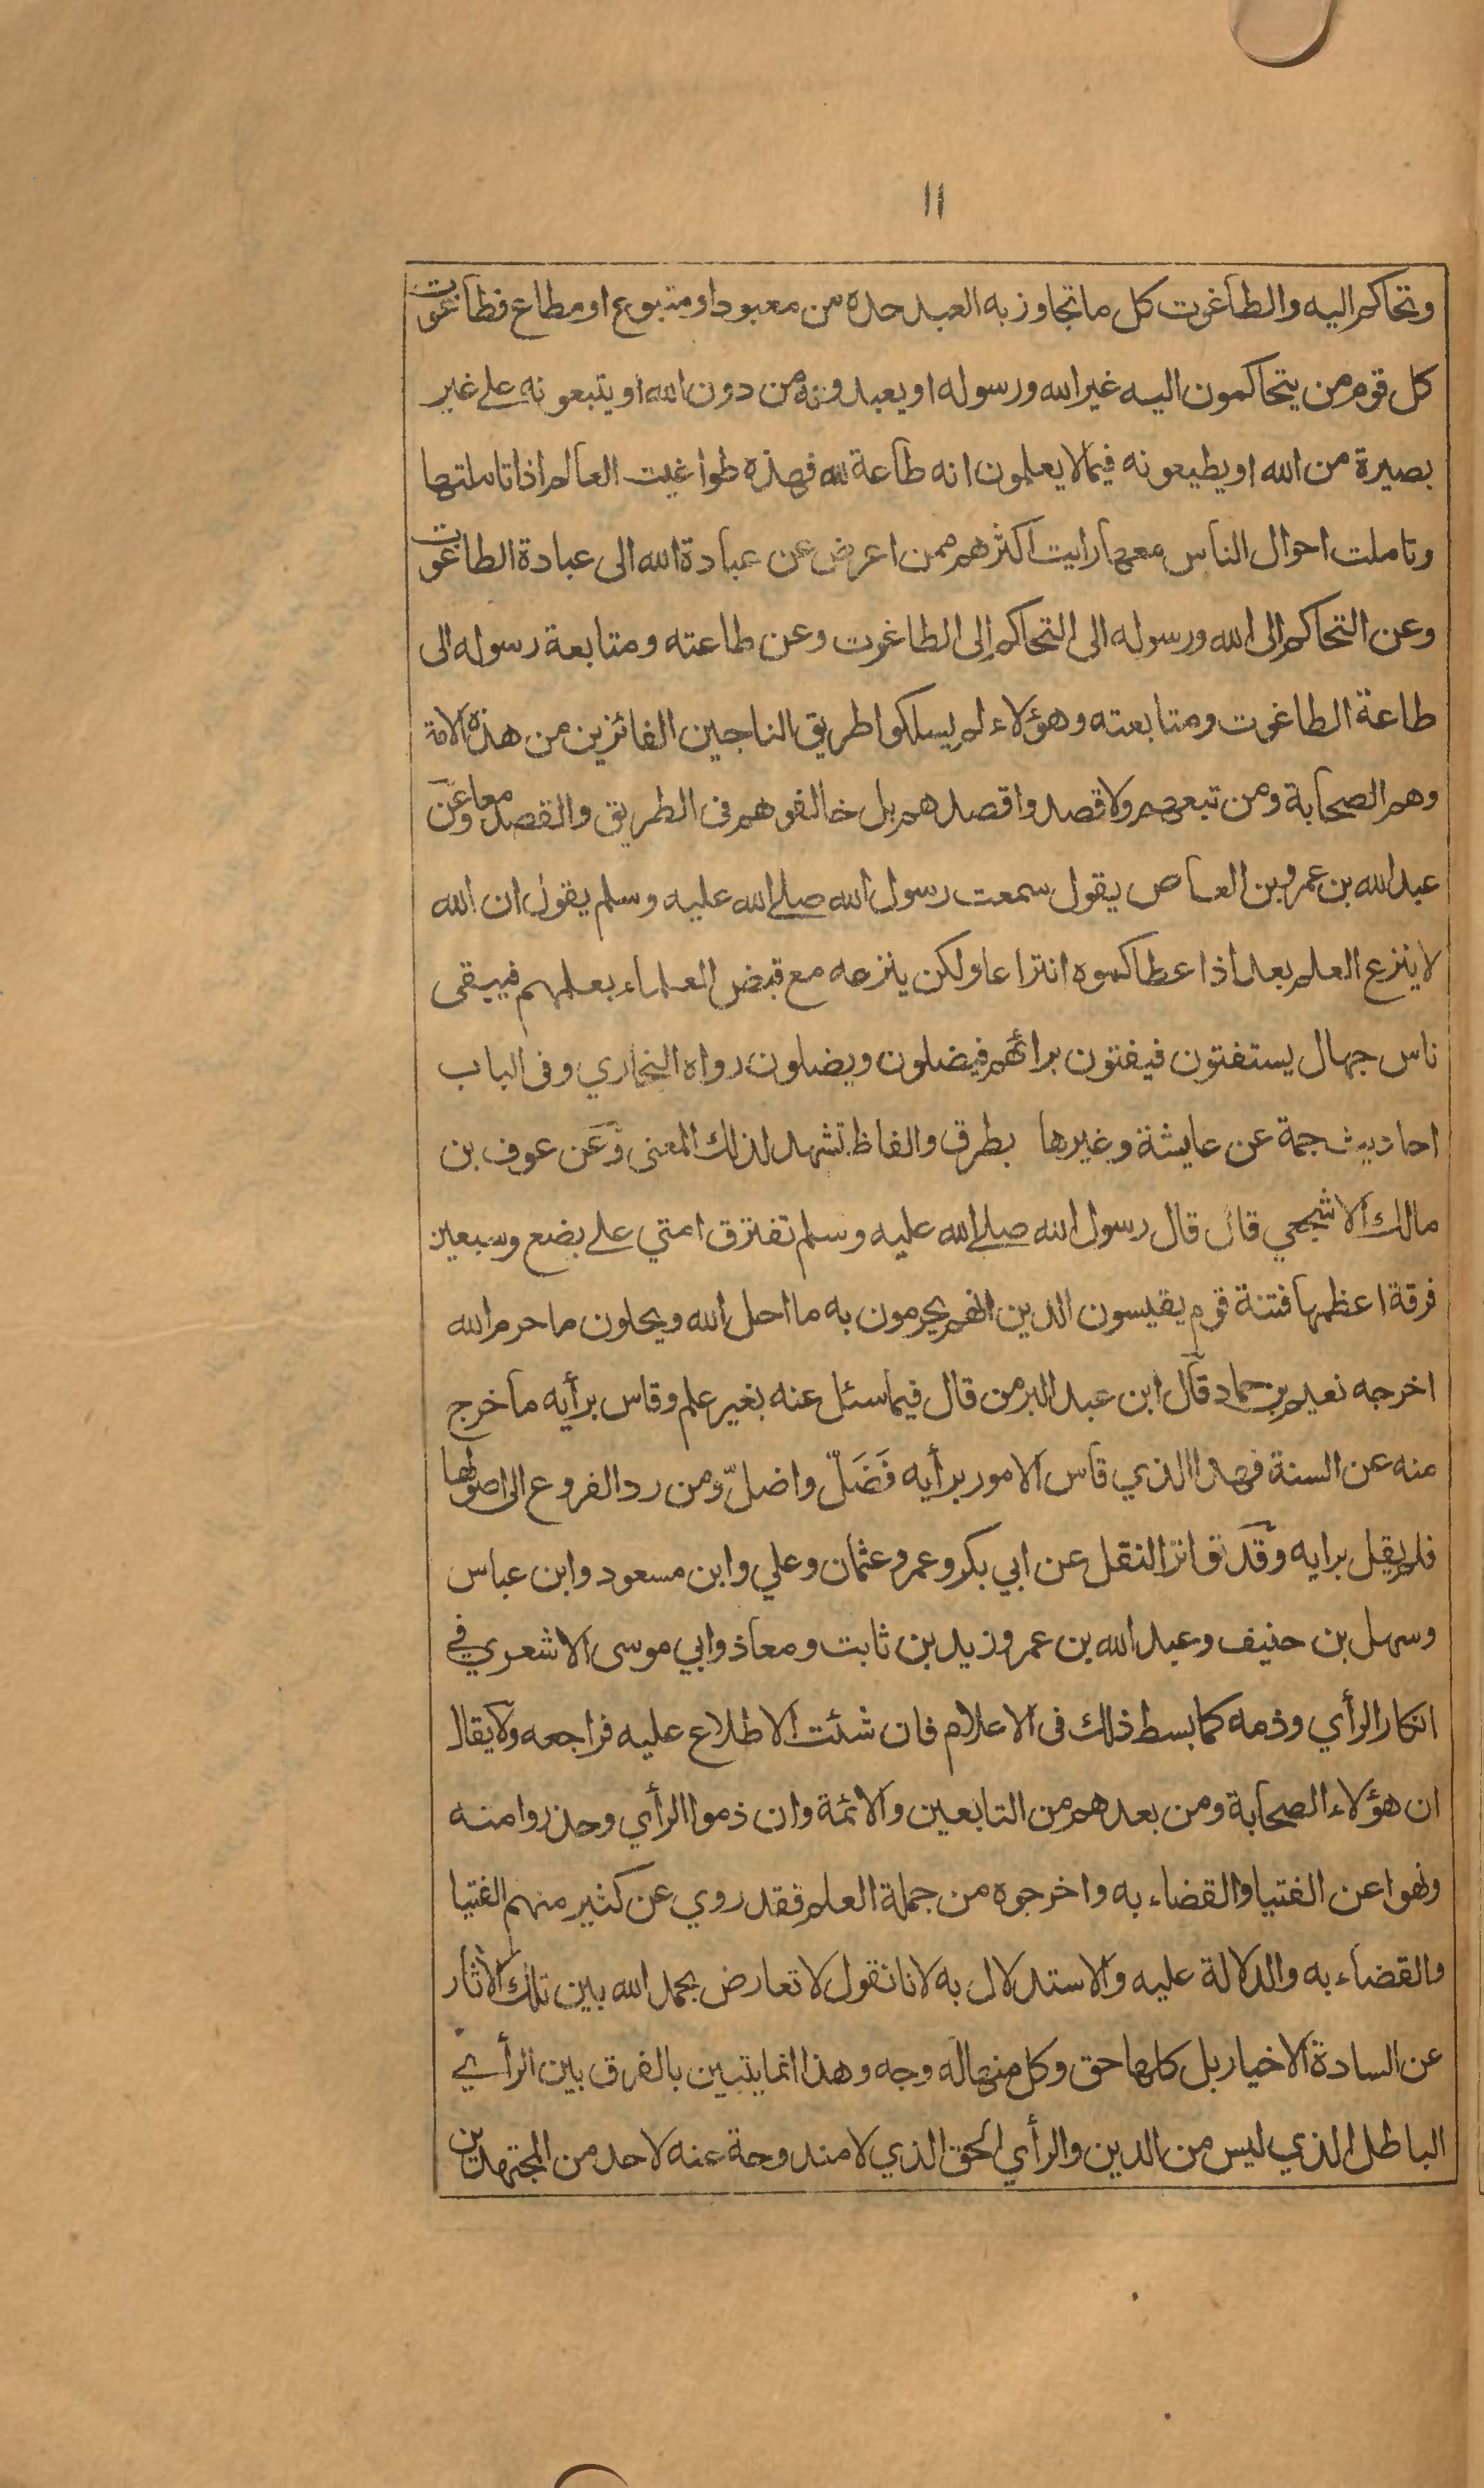 ١١
وتحاكم اليه والطاغوت كل ما تجاوز به العبد حده من معبود او متبوع او مطاع فطاغوت
كل قوم من يتحاكمون اليه غير الله ورسوله او يعبدونه من دون الله او يتبعونه على غير
بصيرة من الله او يطيعونه فيما لا يعلمون انه طاعة لله فهذه طواغيت العالم اذا تاملتها
وتاملت احوال الناس معها رايت اكثرهم ممن اعرض عن عبادة الله الى عبادة الطاغوت
وعن التحاكم الى الله ورسوله الى التحاكم الى الطاغوت وعن طاعته ومتابعة رسوله الى
طاعة الطاغوت ومتابعته وهؤلاء لم يسلكوا طريق الناجين الفائزين من هذه الامة
وهم الصحابة ومن تبعهم ولا قصدوا قصدهم بل خالفوهم فى الطريق والقصد معا وعن
عبد الله بن عمرو بن العاص يقول سمعت رسول الله صلى الله عليه وسلم يقول ان الله
لا ينزع العلم بعد اذ اعطاكموه انتزاعا ولكن ينزعه مع قبض العلماء بعلمهم فيبقى
ناس جهال يستفتون فيفتون برائهم فيضلون ويضلون رواه البخاري وفى الباب
احاديث جمة عن عايشة وغيرها بطرق والفاظ تشهد لذلك المعنى وعن عوف بن
مالك الاشجعي قال قال رسول الله صلى الله عليه وسلم تفترق امتي على بضع وسبعين
فرقة اعظمها فتنة قوم يقيسون الدين برائهم يحرمون به ما احل الله ويحلون ما حرم الله
اخرجه نعيم بن حماد قال ابن عبد البر من قال فيما سئل عنه بغير علم وقاس برأيه ما خرج
منه عن السنة فهذا الذي قاس الامور برأيه فَضَلّ واضلّ ومن رد الفروع الى اصولها
فلم يقل برايه وقد تواتر النقل عن ابي بكر وعمر وعثمان وعلي وابن مسعود وابن عباس
وسهل بن حنيف وعبد الله بن عمر وزيد بن ثابت ومعاذ وابي موسى الاشعري في
انكار الرأي وذمه كما بسط ذلك فى الاعلام فان شئت الاطلاع عليه فراجعه ولا يقال
ان هؤلاء الصحابة ومن بعدهم من التابعين والائمة وان ذموا الرأي وحذروا منه
ونهوا عن الفتيا والقضاء به واخرجوه من جملة العلم فقد روي عن كثير منهم الفتيا
والقضاء به والدلالة عليه والاستدلال به لانا نقول لا تعارض بحمد الله بين تلك الآثار
عن السادة الاخيار بل كلها حق وكل منها له وجه وهذا انما يتبين بالفرق بين الرأي
الباطل الذي ليس من الدين والرأي الحق الذي لا مندوحة عنه لاحد من المجتهدين